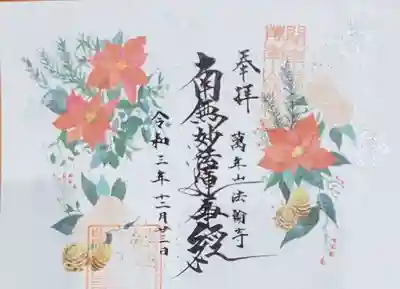 奉拝
萬年山法輪寺
南無妙法蓮華経
令和三年十二月廿三日